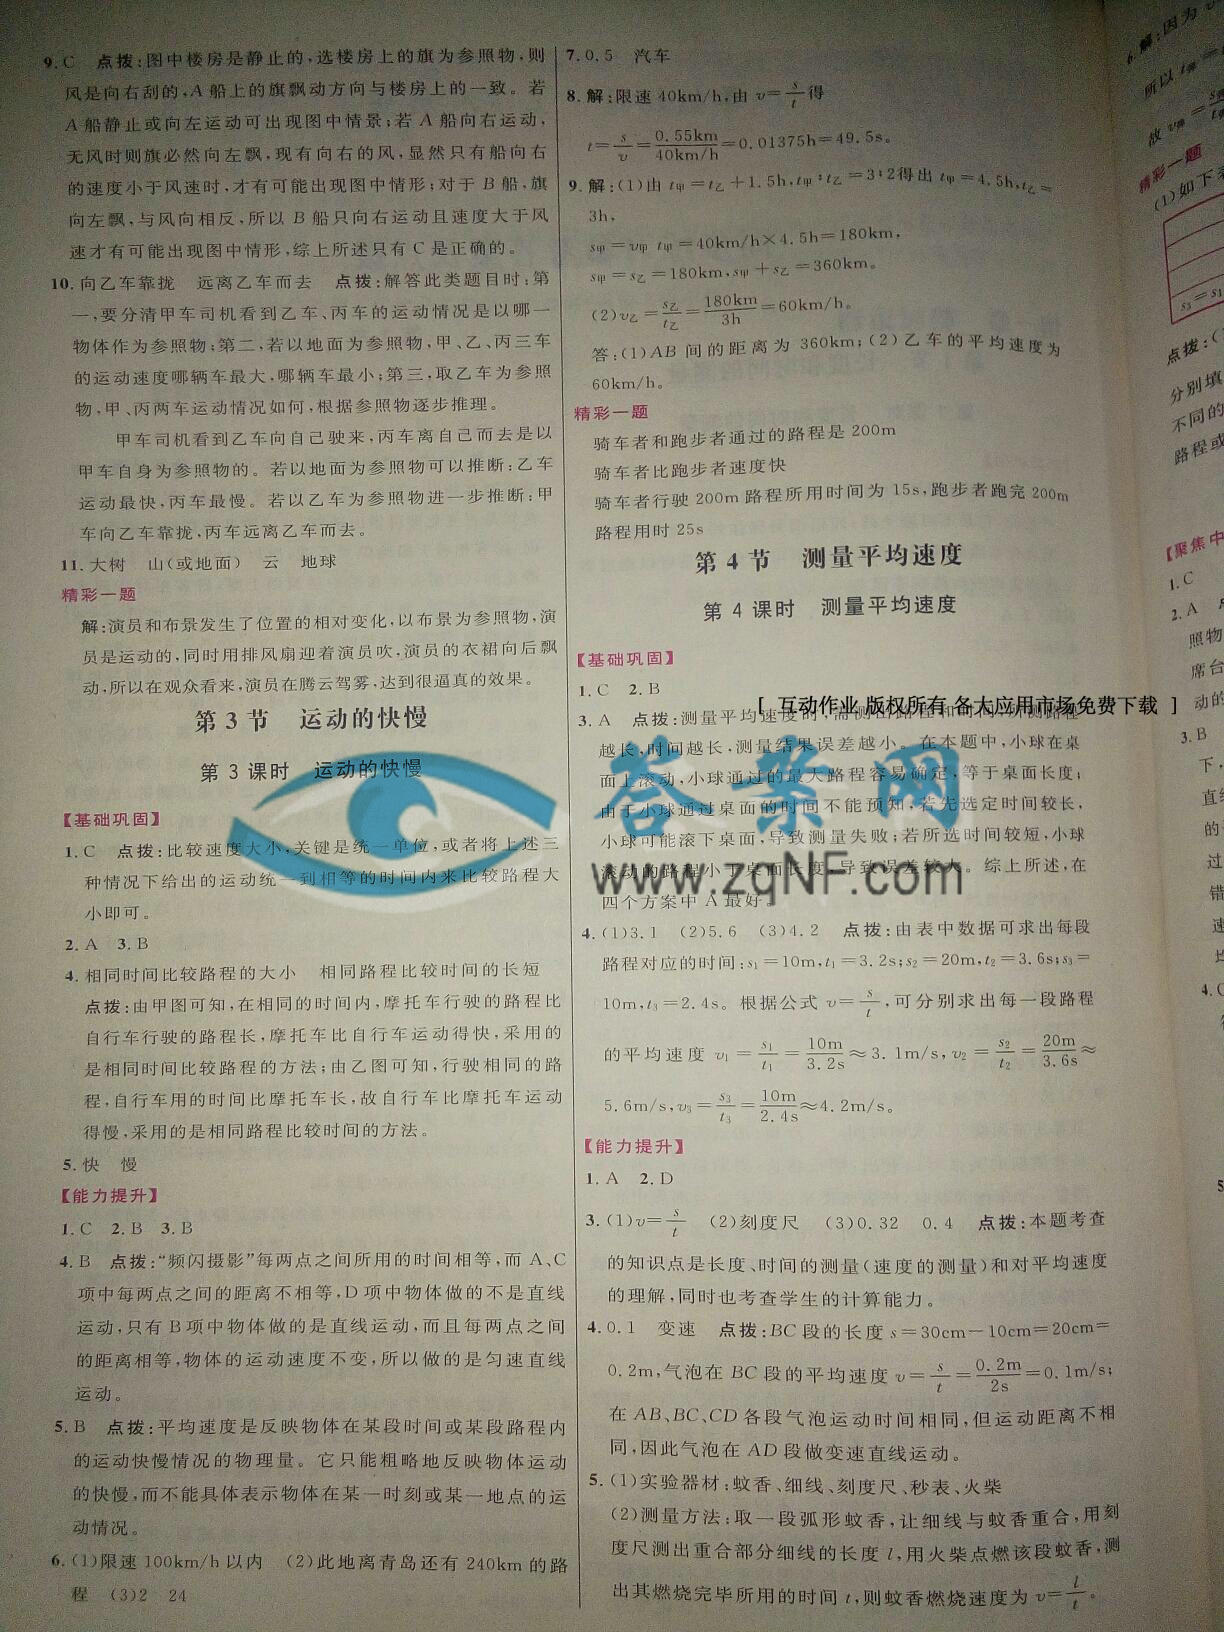 9. C 点拨:图中楼房是静止的,选楼房上的旗为参照物,则
风是向右刮的,A船上的旗飘动方向与楼房上的一致。若
A船静止或向左运动可出现图中情景;若A船向右运动,
无风时则旗必然向左飘,现有向右的风,显然只有船向右
的速度小于风速时,才有可能出现图中情形;对于B船,旗
向左飘,与风向相反,所以B船只向右运动且速度大于风
速才有可能出现图中情形,综上所述只有C是正确的。
10. 向乙车靠拢 远离乙车而去 点拨:解答此类题目时:第
一,要分清甲车司机看到乙车、丙车的运动情况是以哪一
物体作为参照物;第二,若以地面为参照物,甲、乙、丙三车
的运动速度哪辆车最大,哪辆车最小;第三,取乙车为参照
物,甲、丙两车运动情况如何,根据参照物逐步推理。
甲车司机看到乙车向自己驶来,丙车离自己而去是以
甲车自身为参照物的。若以地面为参照物可以推断:乙车
运动最快,丙车最慢。若以乙车为参照物进一步推断:甲
车向乙车靠拢,丙车远离乙车而去。
11. 大树 山(或地面) 云 地球
精彩一题
解:演员和布景发生了位置的相对变化,以布景为参照物,演
员是运动的,同时用排风扇迎着演员吹,演员的衣裙向后飘
动,所以在观众看来,演员在腾云驾雾,达到很逼真的效果。
第3节 运动的快慢
第3课时 运动的快慢
【基础巩固】
1. C 点拨:比较速度大小,关键是统一单位,或者将上述三
种情况下给出的运动统一到相等的时间内来比较路程大
小即可。
2. A 3. B
4. 相同时间比较路程的大小 相同路程比较时间的长短
点拨:由甲图可知,在相同的时间内,摩托车行驶的路程比
自行车行驶的路程长,摩托车比自行车运动得快,采用的
是相同时间比较路程的方法;由乙图可知,行驶相同的路
程,自行车用的时间比摩托车长,故自行车比摩托车运动
得慢,采用的是相同路程比较时间的方法。
5. 快 慢
【能力提升】
1. C 2. B 3. B
4. B 点拨:“频闪摄影”每两点之间所用的时间相等,而A、C
项中每两点之间的距离不相等,D项中物体做的不是直线
运动,只有B项中物体做的是直线运动,而且每两点之间
的距离相等,物体的运动速度不变,所以做的是匀速直线
运动。
5. B 点拨:平均速度是反映物体在某段时间或某段路程内
的运动快慢情况的物理量。它只能粗略地反映物体运动
的快慢,而不能具体表示物体在某一时刻或某一地点的运
动情况。
6. (1)限速100km/h以内 (2)此地离青岛还有240km的路
程 (3)2 24
7. 0.5 汽车
8. 解:限速40km/h,由 v=s/t 得
t=s/v=0.55km/40km/h=0.01375h=49.5s。
9. 解:(1)由t甲=t乙+1.5h,t甲:t乙=3:2得出t甲=4.5h,t乙=
3h,
s甲=v甲 t甲=40km/h×4.5h=180km,
s甲=s乙=180km,s甲+s乙=360km。
(2)v乙=s乙/t乙=180km/3h=60km/h。
答:(1)AB间的距离为360km;(2)乙车的平均速度为
60km/h。
精彩一题
骑车者和跑步者通过的路程是200m
骑车者比跑步者速度快
骑车者行驶200m路程所用时间为15s,跑步者跑完200m
路程用时25s
第4节 测量平均速度
第4课时 测量平均速度
【基础巩固】
1. C 2. B
[ 互动作业 版权所有 各大应用市场免费下载 ]
3. A 点拨:测量平均速度时,需测出路程和时间,所测路程
越长,时间越长,测量结果误差越小。在本题中,小球在桌
面上滚动,小球通过的最大路程容易确定,等于桌面长度;
由于小球通过桌面的时间不能预知,若先选定时间较长,
小球可能滚下桌面,导致测量失败;若所选时间较短,小球
滚动的路程小于桌面长度,导致误差较大。综上所述,在
四个方案中A最好。
答案网
www.zqNF.com
4. (1)3.1 (2)5.6 (3)4.2 点拨:由表中数据可求出每段
路程对应的时间:s1=10m,t1=3.2s;s2=20m,t2=3.6s;s3=
10m,t3=2.4s。根据公式 v=s/t,可分别求出每一段路程
的平均速度 v1=s1/t1=10m/3.2s≈3.1m/s,v2=s2/t2=20m/3.6s≈
5.6m/s,v3=s3/t3=10m/2.4s≈4.2m/s。
【能力提升】
1. A 2. D
3. (1)v=s/t (2)刻度尺 (3)0.32 0.4 点拨:本题考查
的知识点是长度、时间的测量(速度的测量)和对平均速度
的理解,同时也考查学生的计算能力。
4. 0.1 变速 点拨:BC段的长度s=30cm-10cm=20cm=
0.2m,气泡在BC段的平均速度 v=s/t=0.2m/2s=0.1m/s;
在AB、BC、CD各段气泡运动时间相同,但运动距离不相
同,因此气泡在AD段做变速直线运动。
5. (1)实验器材:蚊香、细线、刻度尺、秒表、火柴
(2)测量方法:取一段弧形蚊香,让细线与蚊香重合,用刻
度尺测出重合部分细线的长度l,用火柴点燃该段蚊香,测
出其燃烧完毕所用的时间t,则蚊香燃烧速度为 v=l/t。
6. 解:因为
所以
故
精彩一题
(1)如下
点拨:
分别填
不同的
路程或
【聚焦中
1. C
2. A
照物
席台
动的
3. B
下,
直线
的
过
错
速
均
4.
5